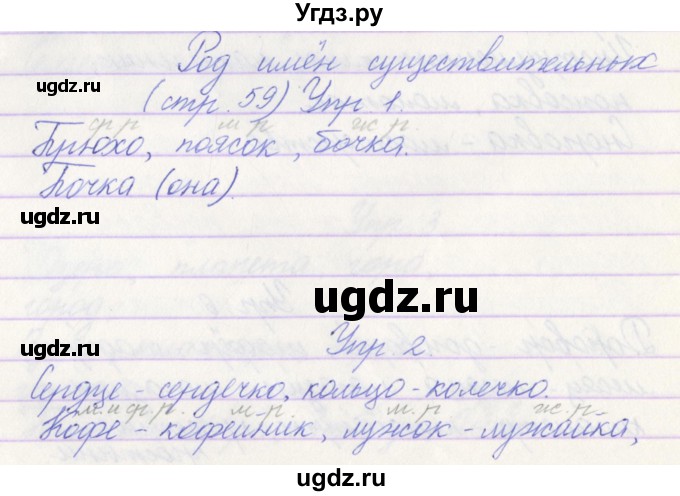 Угдз.ру
Род имён существительных
(стр. 59) Упр 1.
ср р. м. р. ж. р.
Брюхо, поясок, бочка.
Бочка (она).
ugdz.ru
ugdz.ru
ugdz.ru
ugdz.ru
Упр. 2
ugdz.ru
Сердце - сердечко, кольцо - колечко.
м. и ср. р. м. р. м. р ж. р.
Кофе - кофейник, лужок - лужайка,
ugdz.ru
ugdz.ru
ugdz.ru